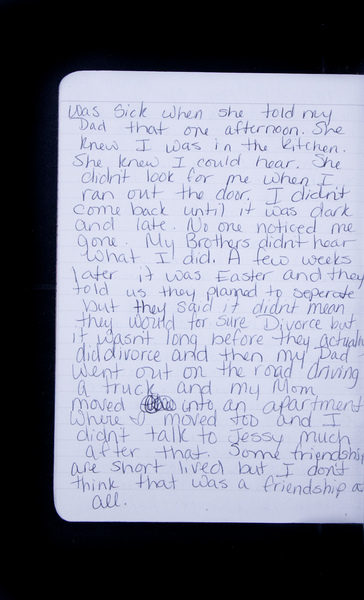 was sick when she told my
Dad that one afternoon. She
knew I was in the kitchen.
She knew I could hear. She
didn't look for me when I
ran out the door. I didn't
come back until it was dark
and late. No one noticed me
gone. My Brothers didnt hear
what I did. A few weeks
later it was Easter and they
told us they planned to seperate
but they said it didnt mean
they would for sure Divorce but
it wasnt long before they actually
did divorce and then my Dad
went out on the road driving
a truck and my Mom
moved into an apartment
where I moved too and I
didn't talk to Jessy much
after that. Some friendship
are short lived but I don't
think that was a friendship a
all.